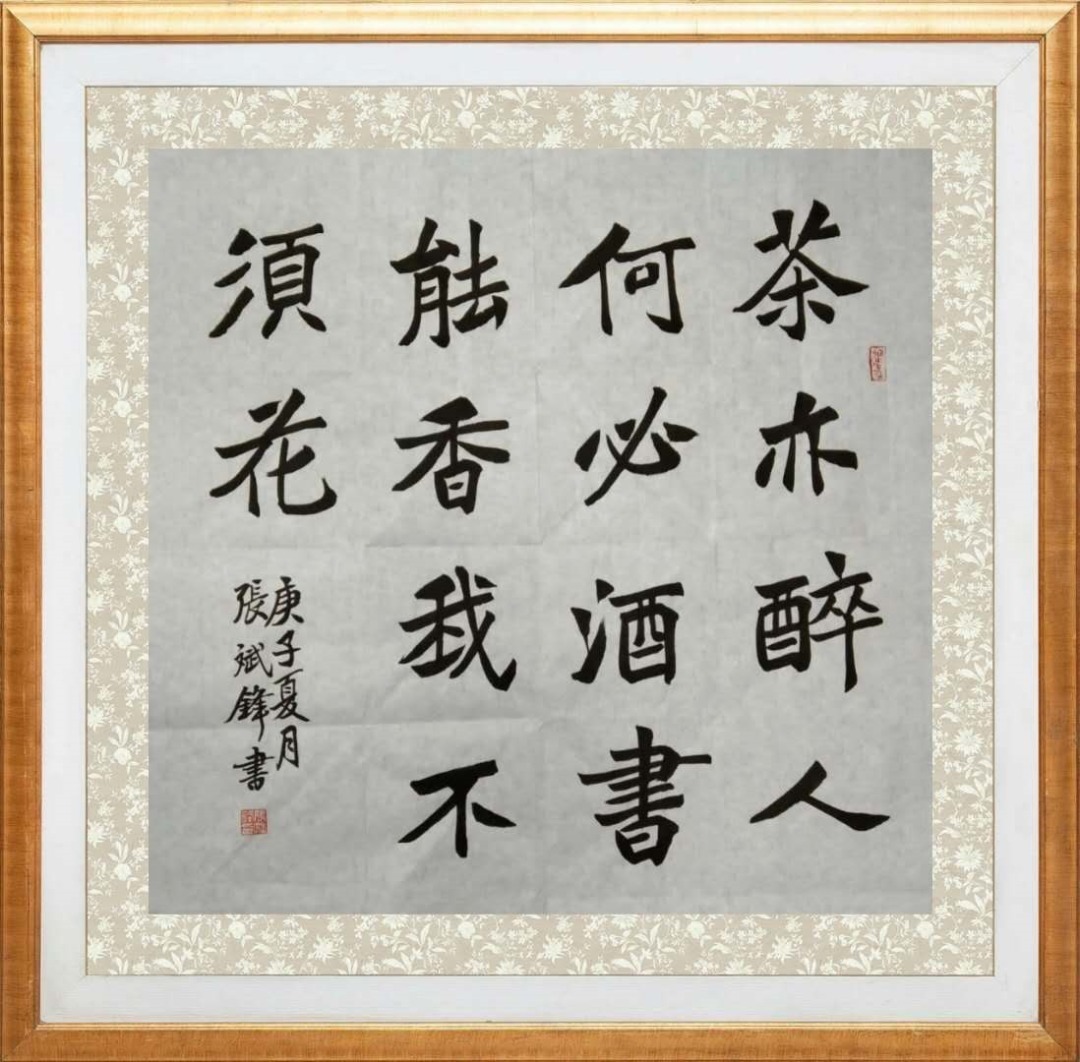 茶亦醉人
何必酒書
能香我不
須花
庚子夏月
張斌鋒書